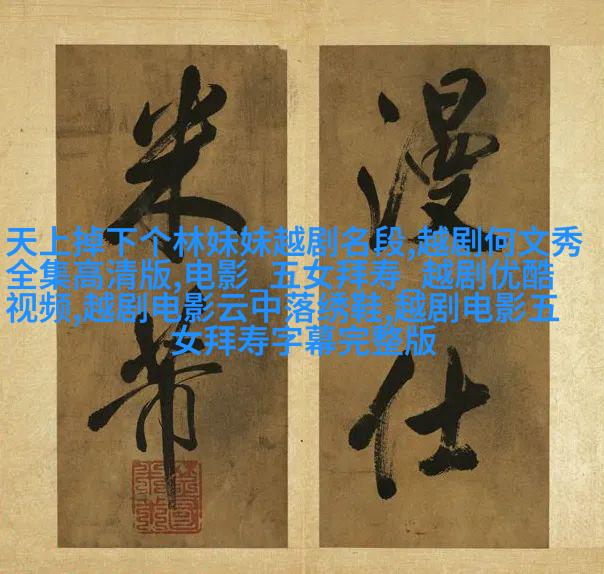 漫仕
米芾
天上掉下个林妹妹越剧名段,越剧何文秀
全集高清版,电影_五女拜寿_越剧优酷
视频,越剧电影云中落绣鞋,越剧电影五
女拜寿字幕完整版